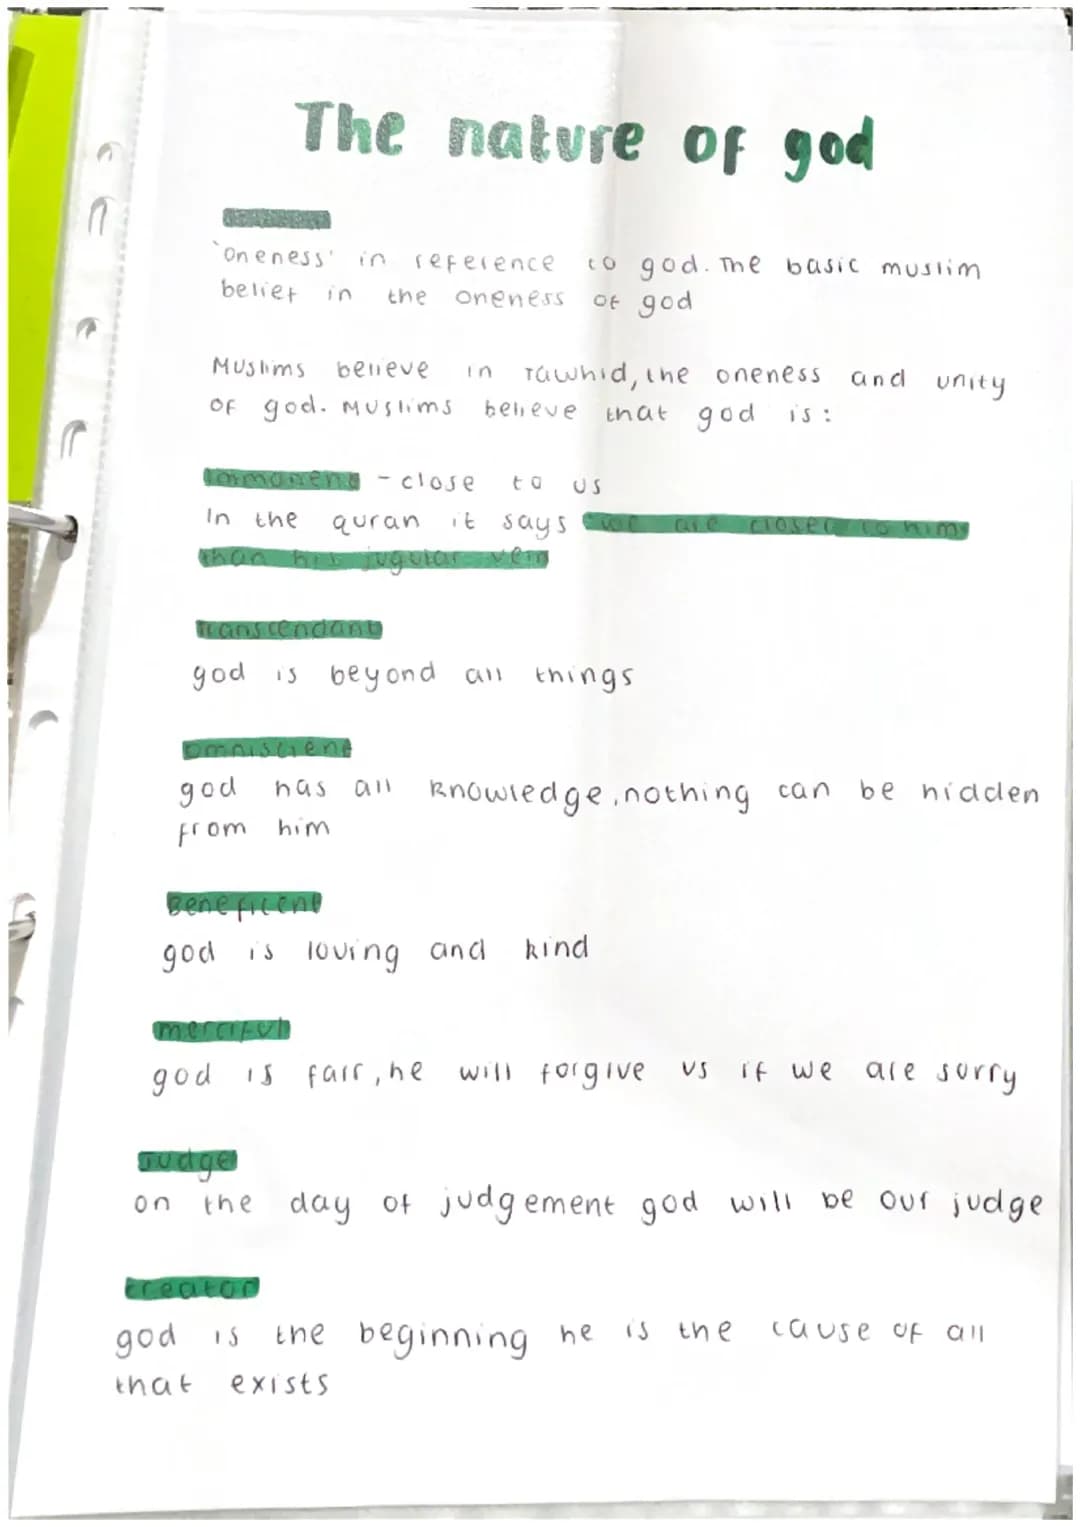 The nature of god
'Oneness' in reference to god. The basic muslim
belief in the oneness of god
Muslims believe in Tawhid, the oneness and unity
of god. Muslims believe that god is:
Immanent - close to us
In the quran it says "we are closer to him
than his jugular vein
Transcendant
god is beyond all things
omniscient
god has all knowledge, nothing can be hidden
from him
Beneficent
god is loving and kind
merciful
god is fair, he will forgive us if we are sorry
Judge
on the day of judgement god will be our judge
creator
god is the beginning he is the cause of all
that exists